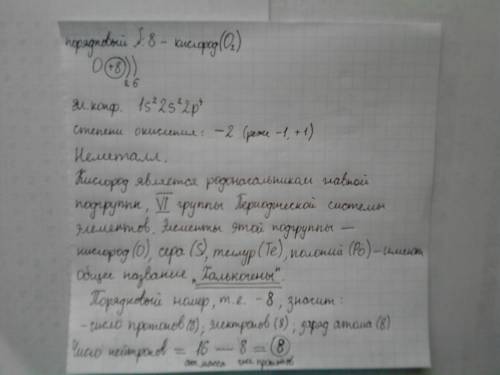 порядковый №8 - кислород (O₂)
O (+8) ) )
2 6
эл. конф. 1s² 2s² 2p⁴
степени окисления: -2 (реже -1, +1)
Неметалл.
Кислород является родоначальником главной
подгруппы, VI группы Периодической системы
элементов. Элементы этой подгруппы —
кислород (O), сера (S), теллур (Te), полоний (Po) - имеют
общее название „Халькогены“.
Порядковый номер, т.е. - 8, значит:
- число протонов (8); электронов (8); заряд атома (8)
Число нейтронов = 16 — 8 = 8
ат. масса число протонов